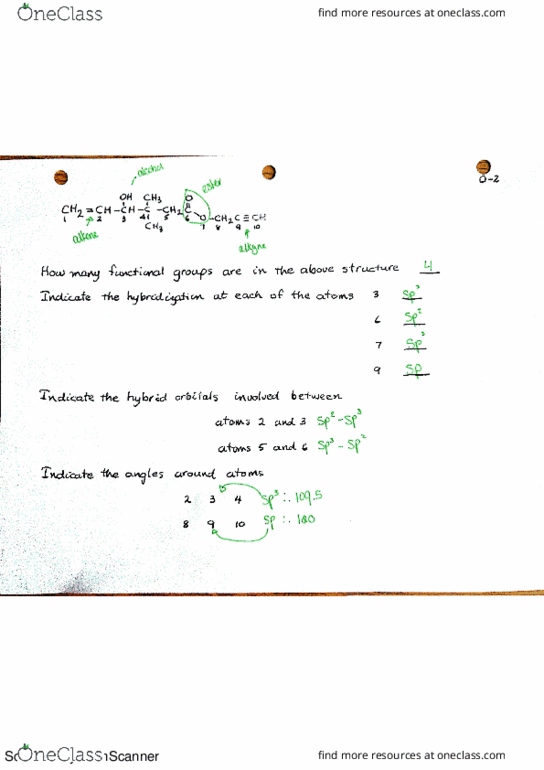 OneClass find more resources at oneclass.com
0-2
alcohol
ester
OH CH3 O
CH2 = CH - CH - C - CH2 C O - CH2 C ≡ CH
1 2 3 4 5 6 7 8 9 10
CH3
alkene alkyne
How many functional groups are in the above structure 4
Indicate the hybridization at each of the atoms 3 sp3
6 sp2
7 sp3
9 sp
Indicate the hybrid orbitals involved between
atoms 2 and 3 sp2-sp3
atoms 5 and 6 sp3-sp2
Indicate the angles around atoms
2 3 4 sp3 ∴ 109.5
8 9 10 sp ∴ 180
OneClass Scanner find more resources at oneclass.com